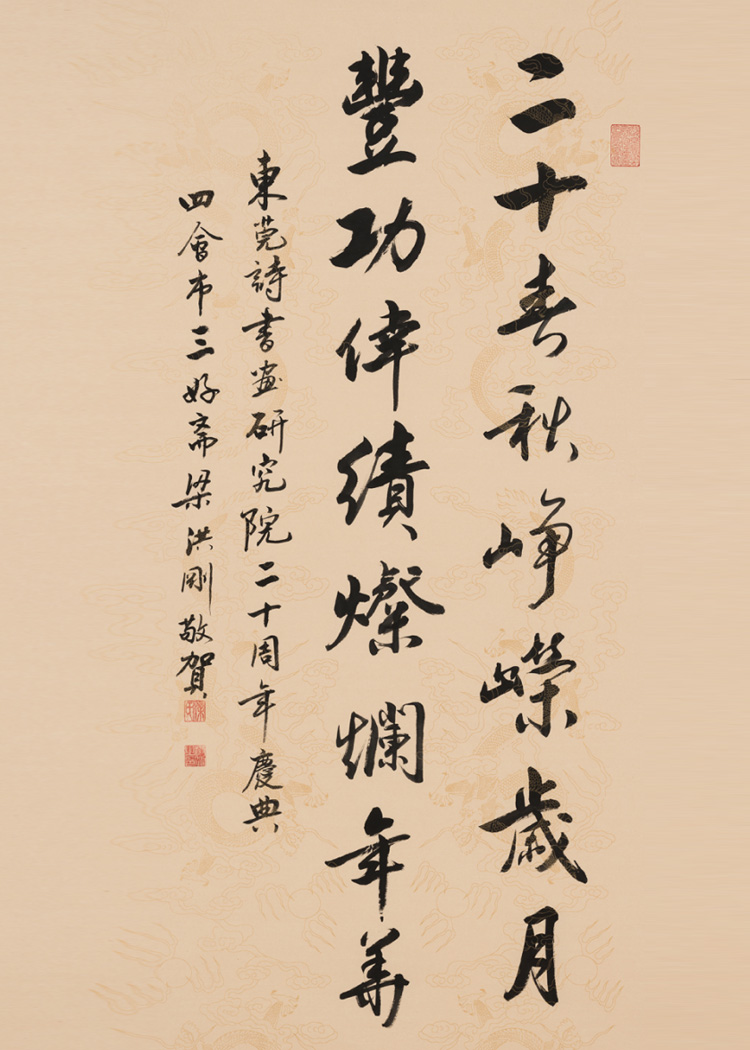 二十春秋崢嶸歲月
豐功偉績燦爛年華
東莞詩書画研究院二十周年慶典
四會市三好斋梁洪剛敬賀